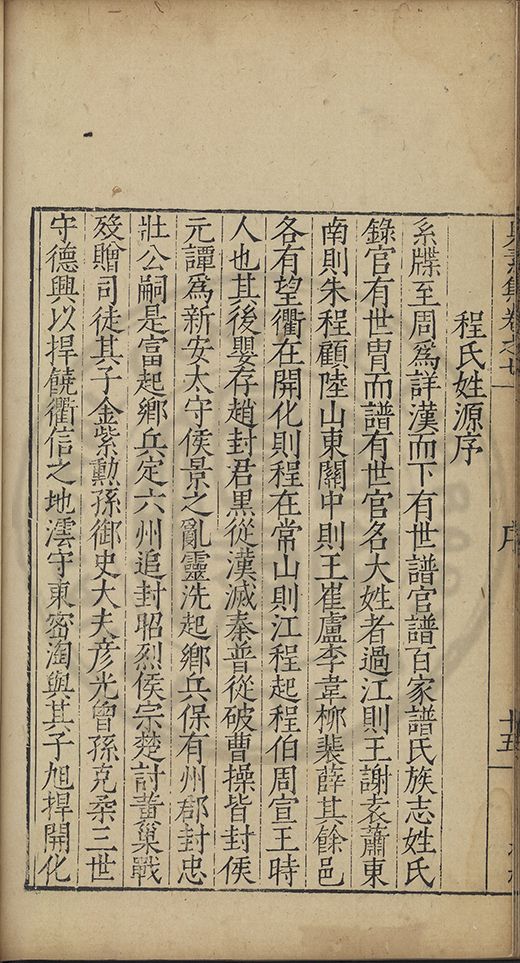 集卷之
序
十五
程氏姓源序
系牒至周爲詳漢而下有世譜官譜百家譜氏族志姓氏
錄官有世冑而譜有世官名大姓者過江則王謝袁蕭東
南則朱程顧陸山東關中則王崔盧李韋柳裴薛其餘邑
各有望衢在開化則程在常山則江程起程伯周宣王時
人也其後嬰存趙封君黑從漢滅秦普從破曹操皆封侯
元譚爲新安太守侯景之亂靈洗起鄉兵保有州郡封忠
壯公嗣是富起鄉兵定六州追封昭烈侯宗楚討黃巢戰
歿贈司徒其子金紫勲孫御史大夫彥光曾孫克柔三世
守德興以捍饒衢信之地澐守東密淘與其子旭捍開化